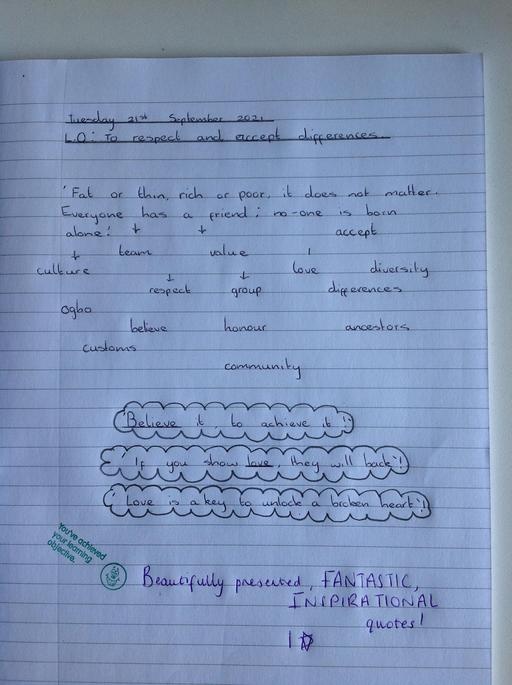 Tuesday 21st September 2021
L.O: To respect and accept differences.
'Fat or thin, rich or poor, it does not matter.
Everyone has a friend; no-one is born
alone!'
accept
team value
culture love diversity
respect group differences
Ogbo
believe honour ancestors
customs
community
'Believe it to achieve it!'
'If you show love, they will back'!
'Love is a key to unlock a broken heart'!
You've achieved
your learning
objective.
Beautifully presented, FANTASTIC,
INSPIRATIONAL
quotes!
1